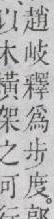 趙岐釋為步度
以木橫架之可